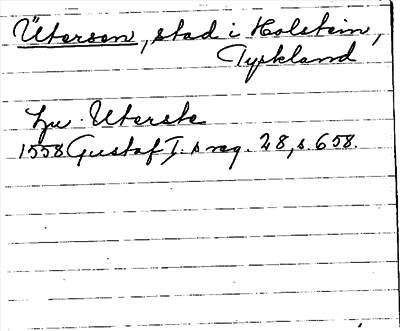 Ütersen, stad i Holstein,
Tyskland
zu Uterste
1558 Gustaf I. s reg. 28, s. 658.